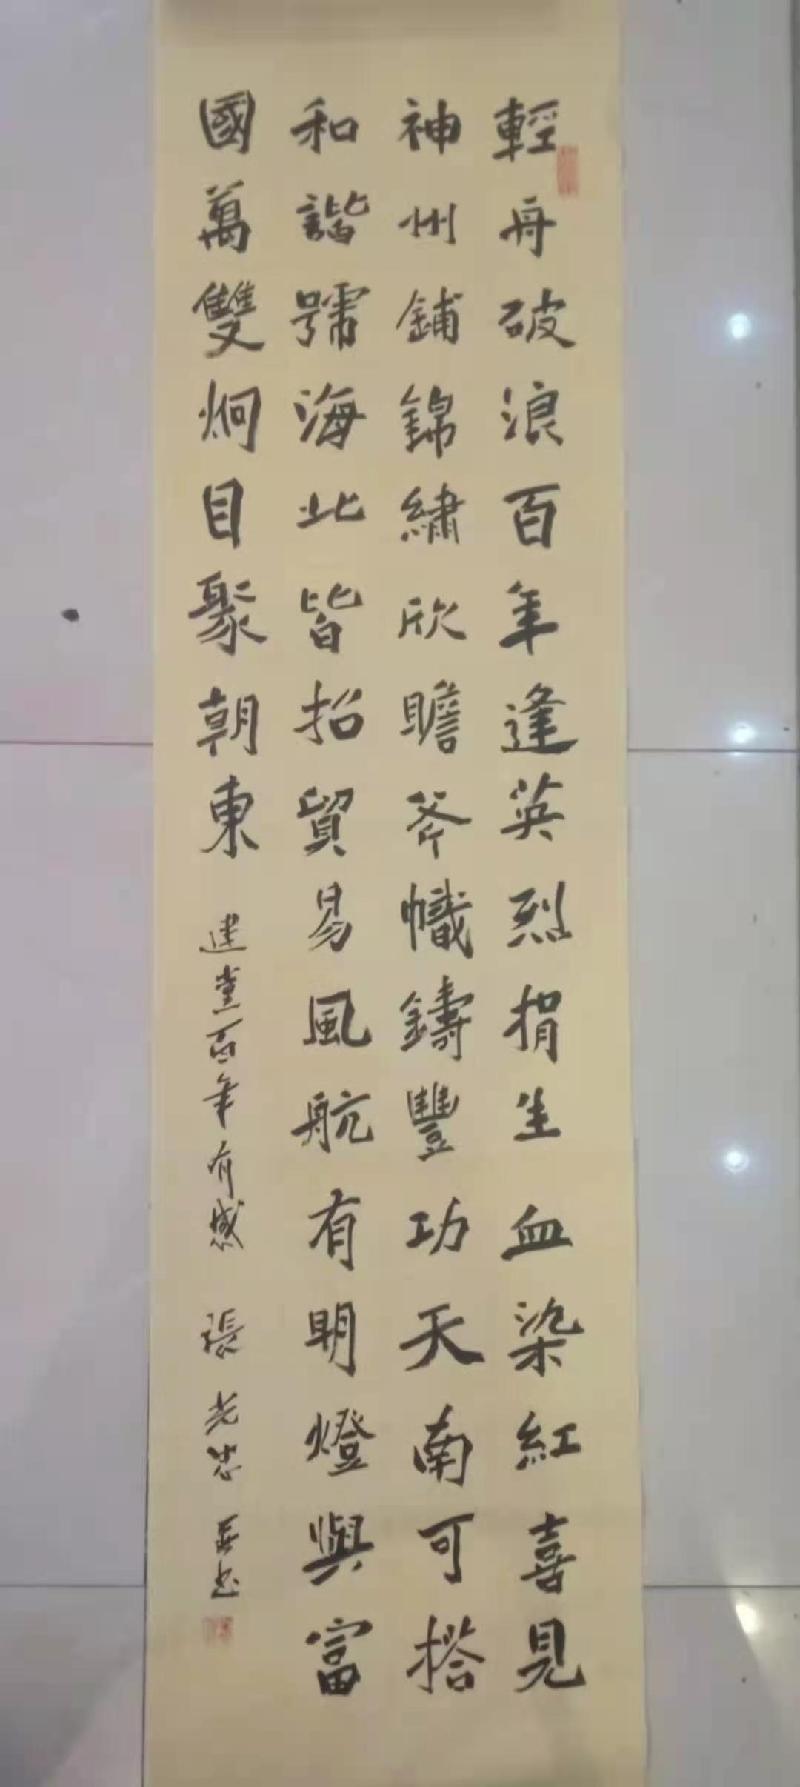 輕舟破浪百年逢英烈捐生血染紅喜見
神州鋪錦繡欣瞻斧幟鑄豐功天南可搭
和諧號海北皆招貿易風航有明燈與富
國萬雙炯目聚朝東
建黨百年有感 張光忠